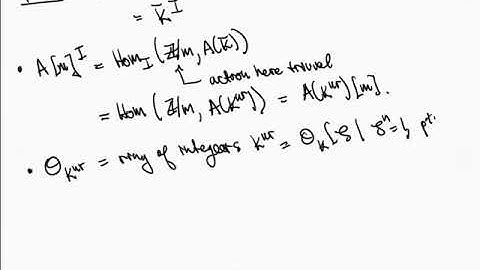 = K̄^I
• A[m]^I = Hom_I (ℤ/m, A(K̄))
action here trivial
= Hom (ℤ/m, A(K^ur)) = A(K^ur)[m].
• O_{K^ur} = ring of integers K^ur = O_K[ζ | ζ^n = 1, p∤